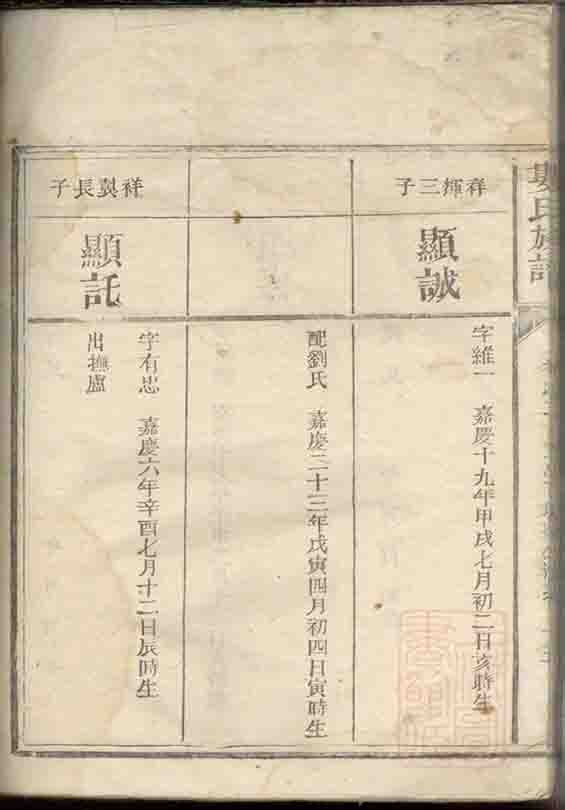 氏族譜
祥輝三子
顯誠
字維一　嘉慶十九年甲戌七月初二日亥時生
配劉氏　嘉慶二十三年戊寅四月初四日寅時生
祥巽長子
顯託
字有忠　嘉慶六年辛酉七月十二日辰時生
出撫盧